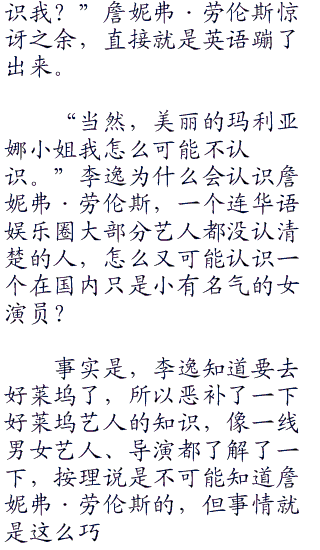 识我？”詹妮弗·劳伦斯惊
讶之余，直接就是英语蹦了
出来。
“当然，美丽的玛利亚
娜小姐我怎么可能不认
识。”李逸为什么会认识詹
妮弗·劳伦斯，一个连华语
娱乐圈大部分艺人都没认清
楚的人，怎么又可能认识一
个在国内只是小有名气的女
演员？
事实是，李逸知道要去
好莱坞了，所以恶补了一下
好莱坞艺人的知识，像一线
男女艺人、导演都了解了一
下，按理说是不可能知道詹
妮弗·劳伦斯的，但事情就
是这么巧